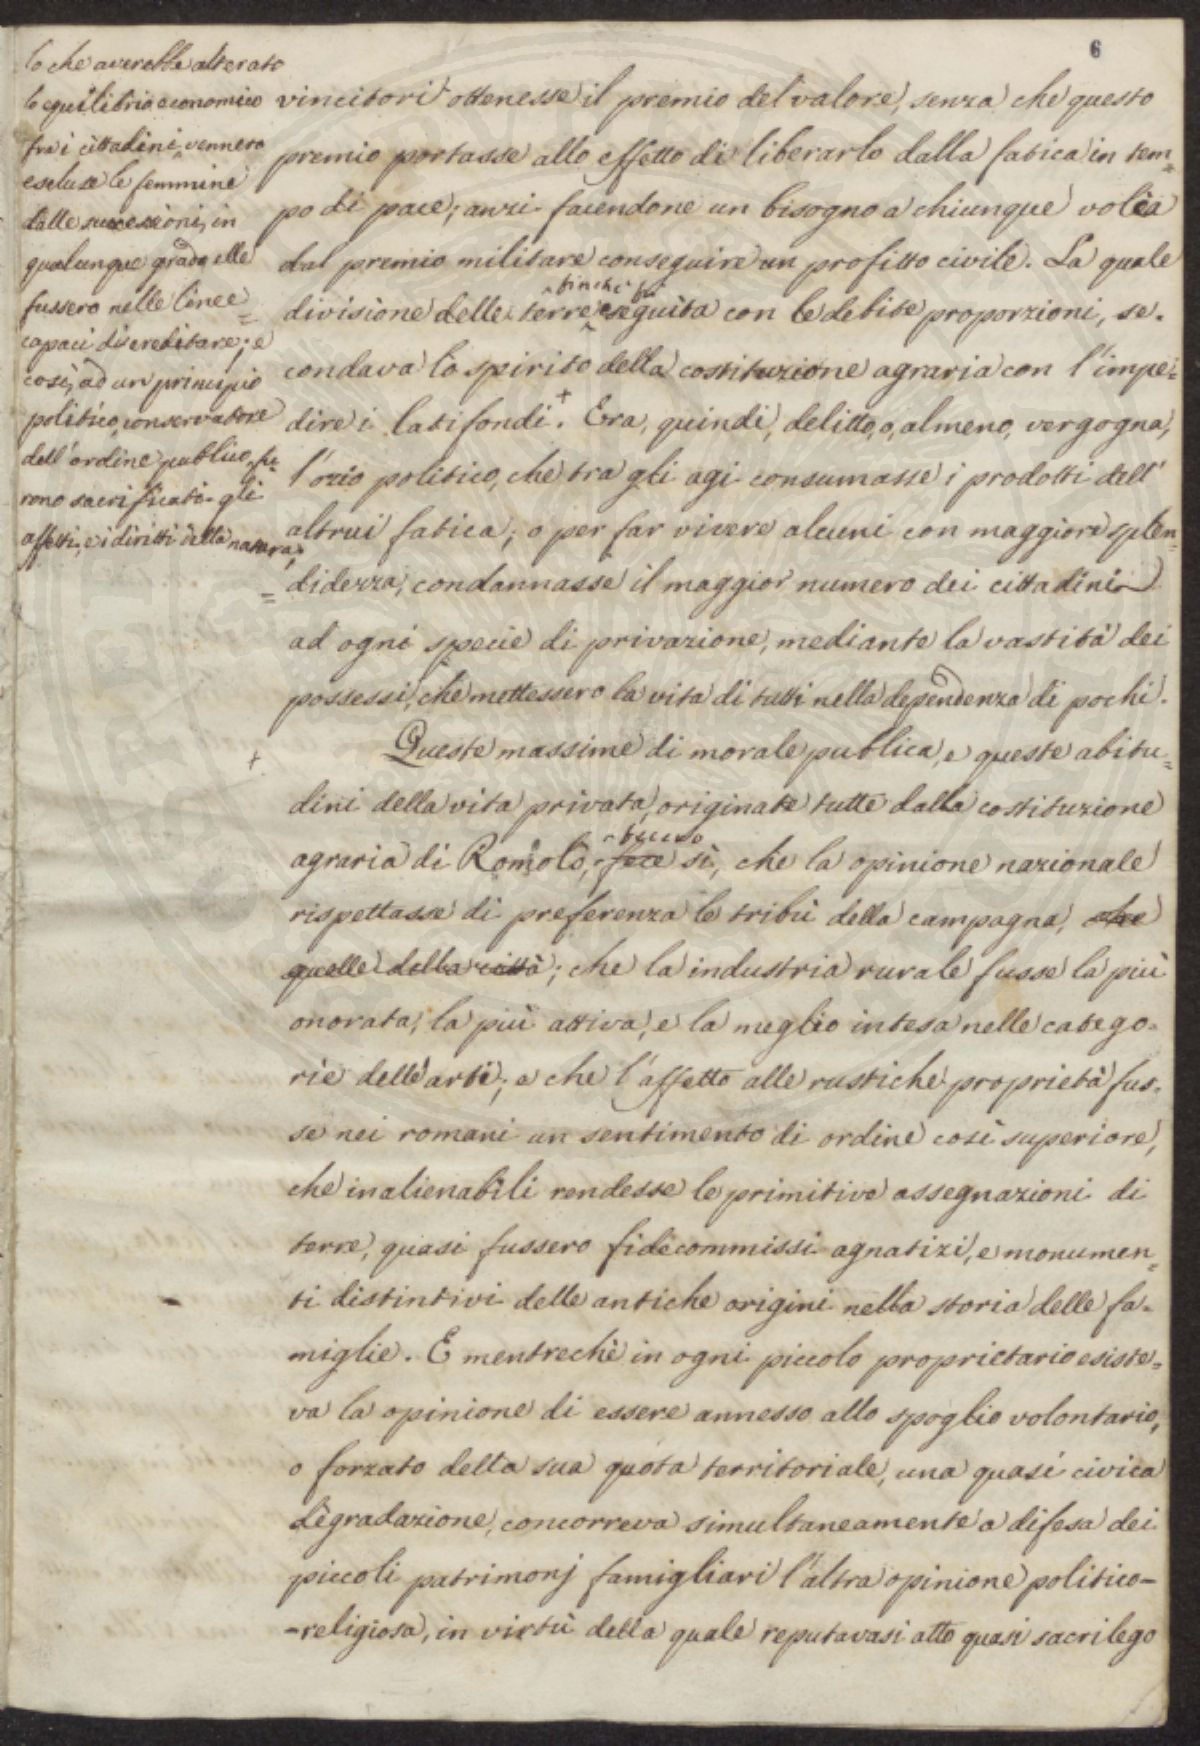 6
lo che averebbe alterato
lo equilibrio economico
fra i cittadini, vennero
escluse le femmine
dalle successioni, in
qualunque grado elle
fussero nelle linee
capaci di ereditare; e
così, ad un principio
politico, conservatore
dell'ordine publico, fu=
rono sacrificati gli
affetti, e i diritti della natura;
vincitori ottenesse il premio del valore, senza che questo
premio portasse allo effetto di liberarlo dalla fatica in tem=
po di pace; anzi facendone un bisogno a chiunque volea
dal premio militare conseguire un profitto civile. La quale
finchè fu
divisione delle terre eseguita con le debite proporzioni, se=
condava lo spirito della costituzione agraria con l'impe=
dire i latifondi.+ Era, quindi, delitto, o, almeno, vergogna,
l'ozio politico, che tra gli agi consumasse i prodotti dell'
altrui fatica; o per far vivere alcuni con maggiore splen=
=didezza, condannasse il maggior numero dei cittadini
ad ogni specie di privazione, mediante la vastità dei
possessi, che mettessero la vita di tutti nella dependenza di pochi.
+ Queste massime di morale publica, e queste abitu=
dini della vita privata, originate tutte dalla costituzione
fecero
agraria di Romolo, fece sì, che la opinione nazionale
rispettasse di preferenza le tribù della campagna, che
quelle della città; che la industria rurale fusse la più
onorata, la più attiva, e la meglio intesa nelle catego=
rie delle arti; e che l'affetto alle rustiche proprietà fus=
se nei romani un sentimento di ordine così superiore,
che inalienabili rendesse le primitive assegnazioni di
terre, quasi fussero fidecommissi agnatizi, e monumen=
ti distintivi delle antiche origini nella storia delle fa=
miglie. E mentrechè in ogni piccolo proprietario esiste=
va la opinione di essere annesso allo spoglio volontario,
o forzato della sua quota territoriale, una quasi civica
degradazione, concorreva simultaneamente a difesa dei
piccoli patrimonj famigliari l'altra opinione politico-
-religiosa, in virtù della quale reputavasi atto quasi sacrilego